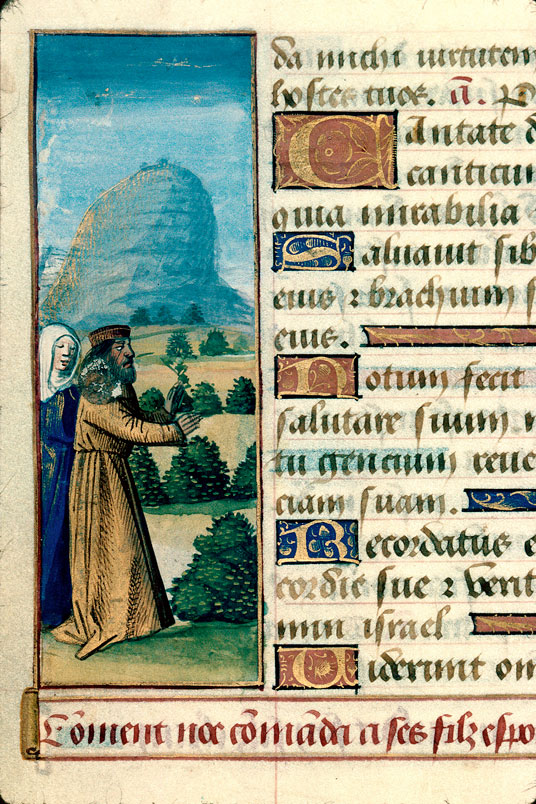 da michi virtutem
hostes tuos. a. P
Cantate d
canticum
quia mirabilia
Saluauit sib
eius ⁊ brachium s
eius.
Notum fecit
salutare suum
tu gencium reue
ciam suam.
Recordatus e
cordie sue ⁊ verit
mui israel
Viderunt om
Cõment noe cõmãda a ses filz espo